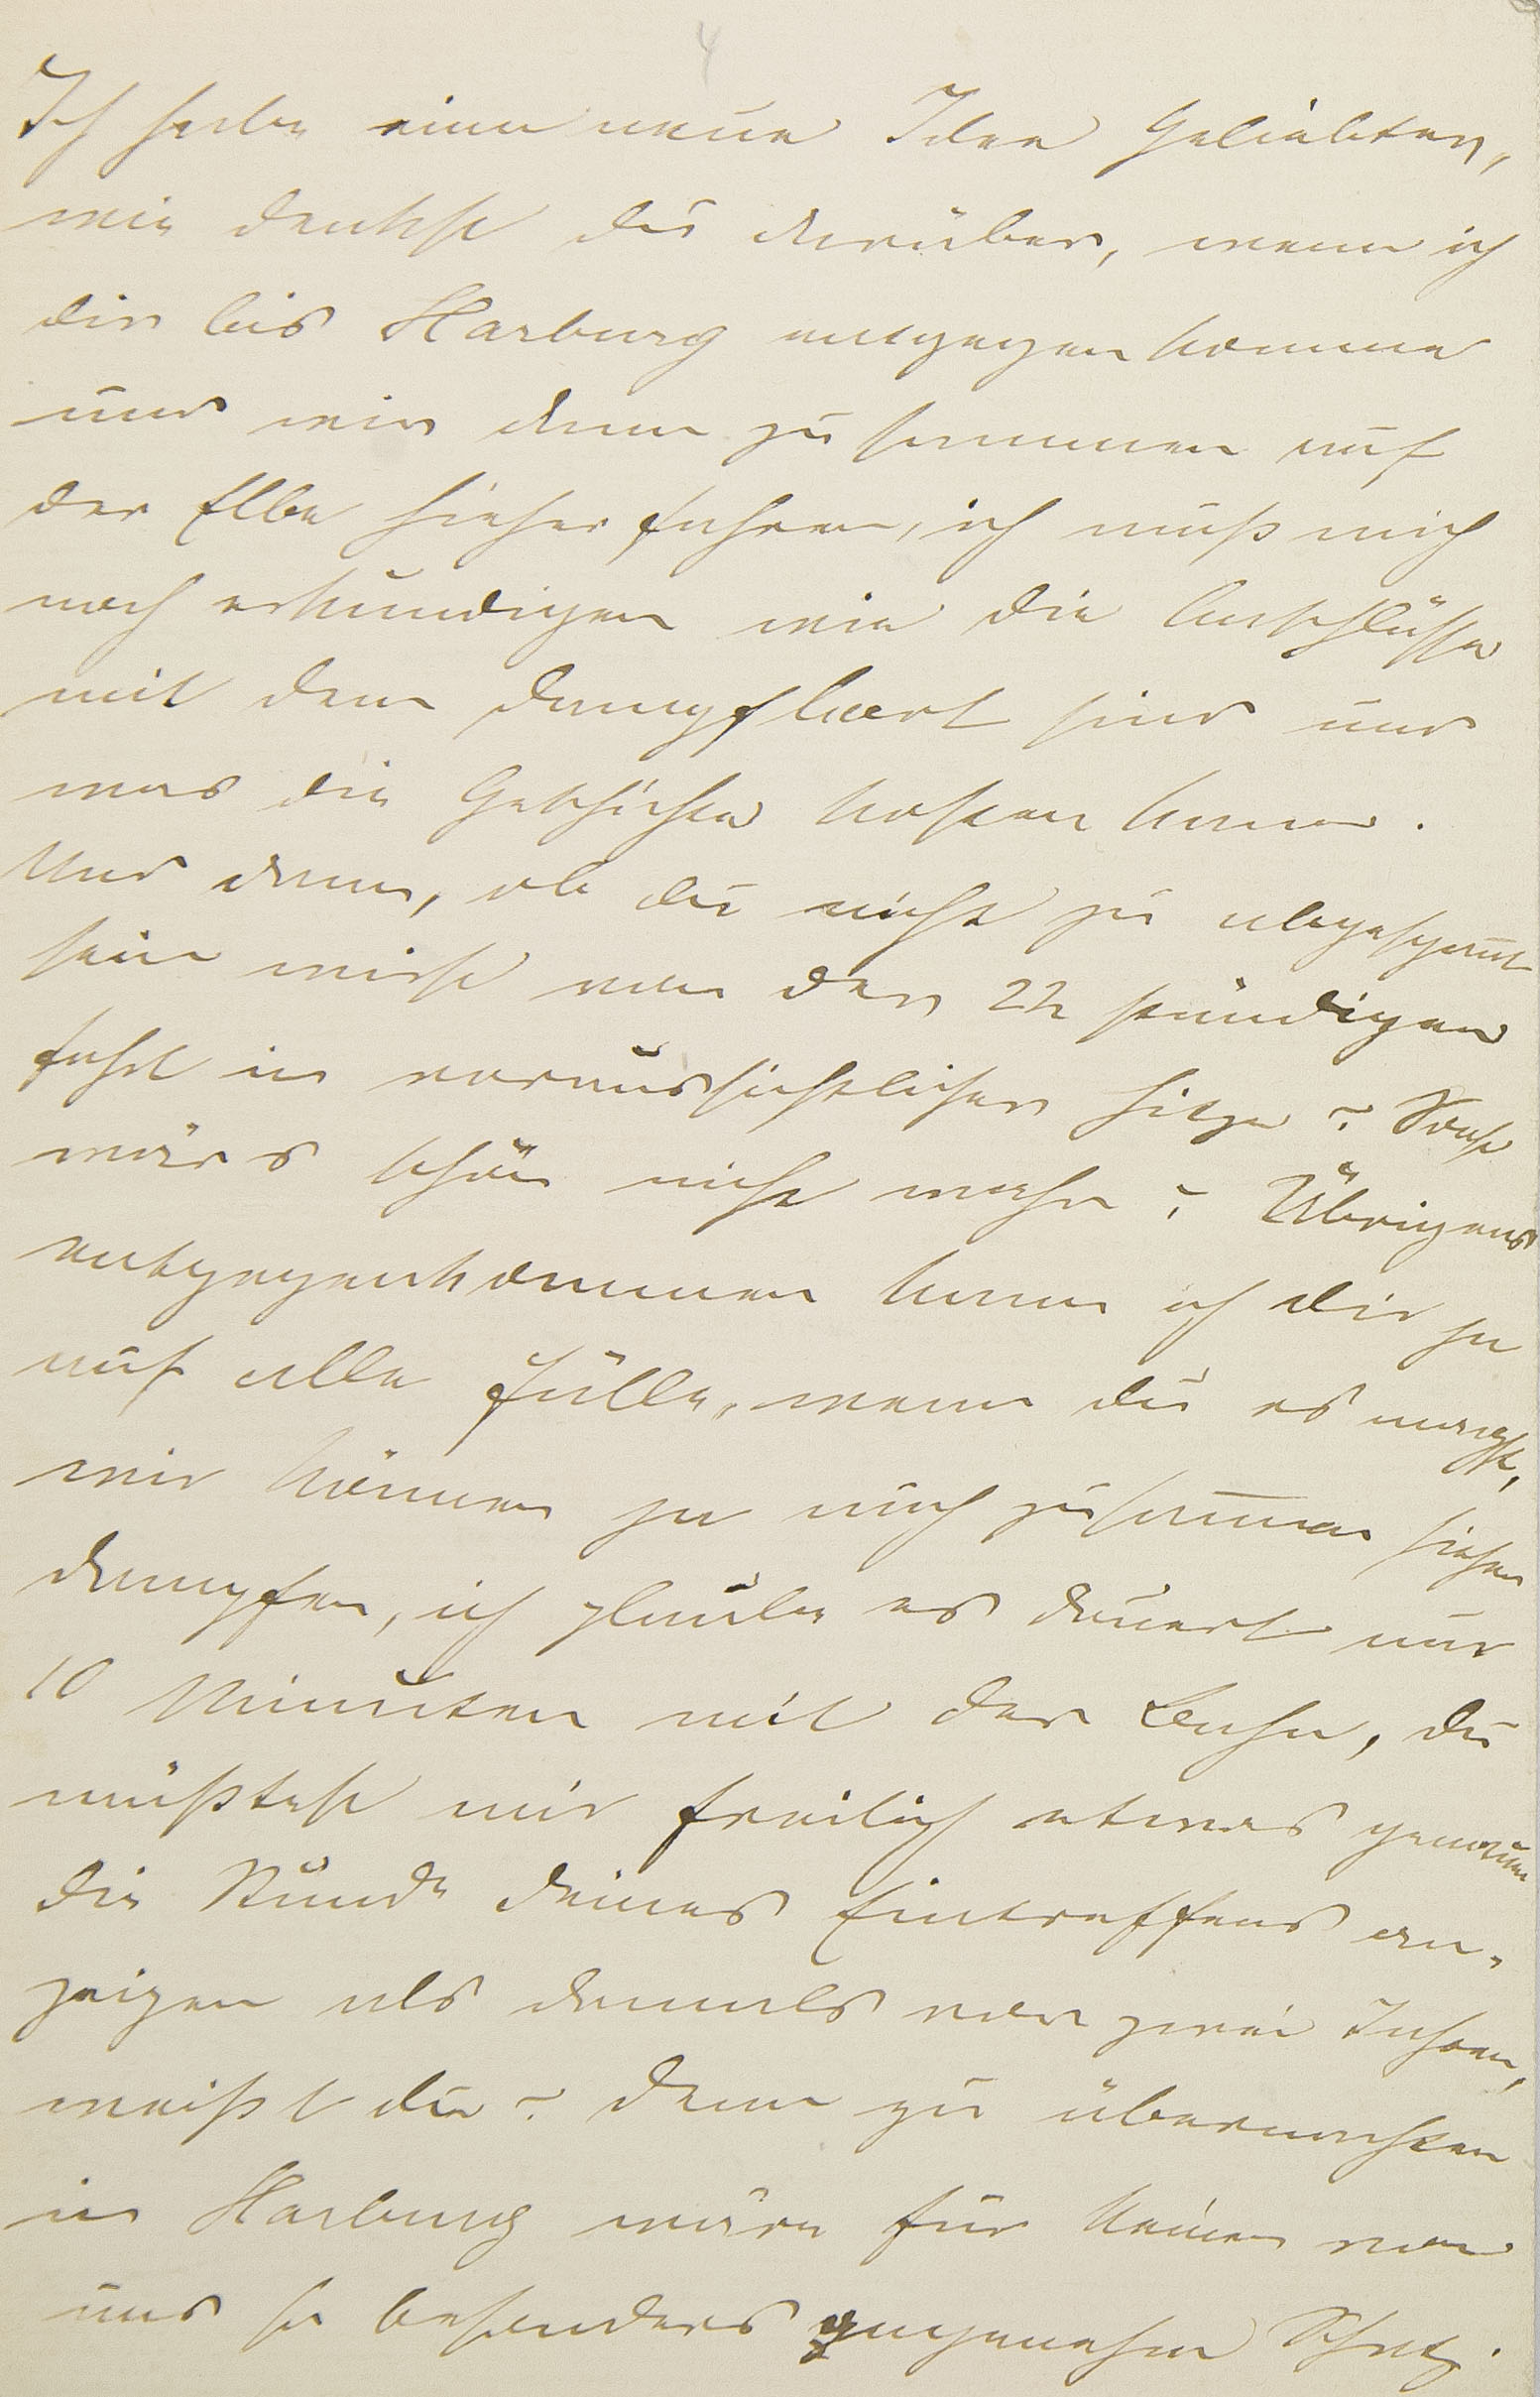 4
Ich habe eine neue Idee Geliebter,
wie denkst du darüber, wenn ich
dir bis Harburg entgegen komme
und wir dann zusammen auf
der Elbe hieher fahren, ich muß mich
noch erkundigen wie die Anschlüsse
mit dem Dampfboot sind und
was die Geschichte kosten kann.
Und dann, ob du nicht zu abgespannt
sein wirst von der 22 stündigen
Fahrt in voraussichtlicher Hitze? Sonst
wärs schön nicht wahr? Übrigens
entgegenkommen kann ich dir ja
auf alle Fälle, wenn du es magst,
wir können ja auch zusammen hieher
dampfen, ich glaube es dauert nur
10 Minuten mit der Bahn, du
müßtest mir freilich etwas genauer
die Stunde deines Eintreffens an-
zeigen als damals vor zwei Jahren,
weißt du? Denn zu übernachten
in Harburg wäre für keinen von
uns so besonders angenehm Schatz.